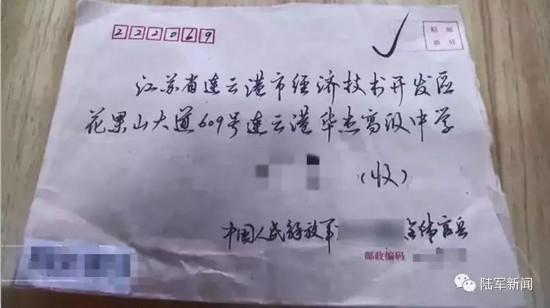 222069
贴 邮
票 处
江苏省连云港市经济技术开发区
花果山大道609号连云港华杰高级中学
(收)
中国人民解放军 全体官兵
邮政编码
陆军新闻